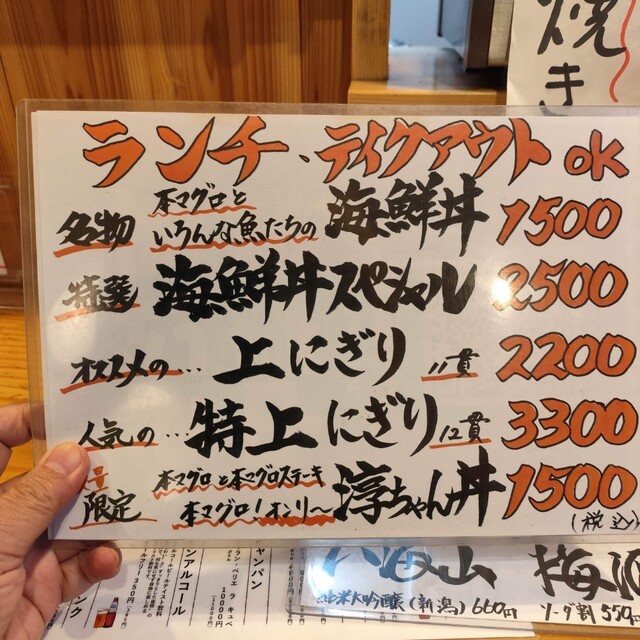 焼き
ランチ、テイクアウト OK
名物 本マグロと いろんな魚たちの 海鮮丼 1500
特選 海鮮丼スペシャル 2500
オススメの… 上にぎり 11貫 2200
人気の… 特上にぎり 12貫 3300
限定 本マグロと本マグロステーキ 本マグロ!オンリ〜 淳ちゃん丼 1500
(税込)
八海山
純米大吟醸(新潟)660円
ソーダ割 550
ンアルコール
350円
ャンパン
10000円